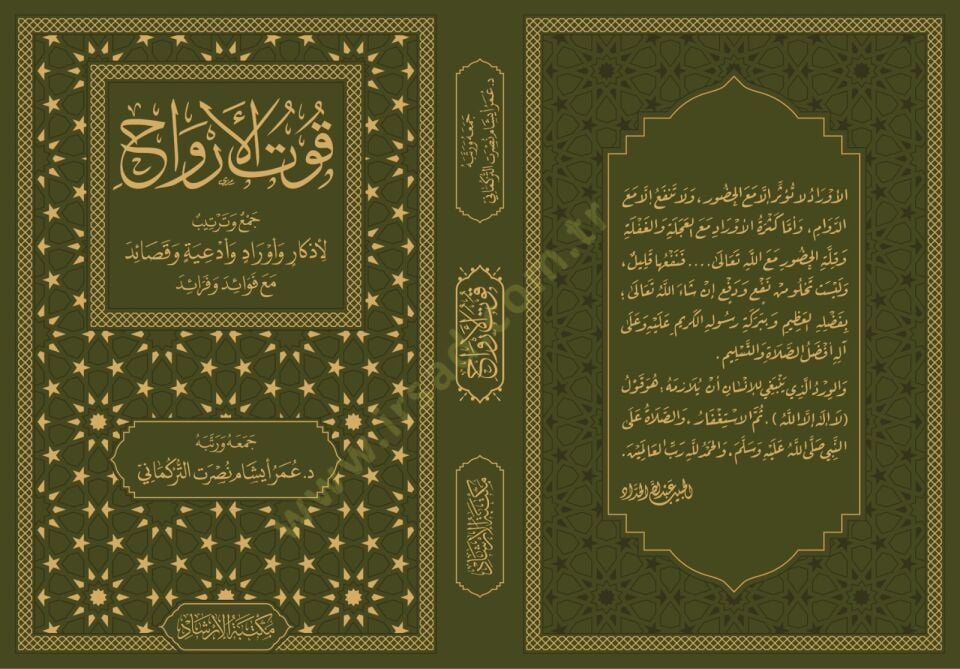 قُوتُ الأَرْوَاحِ
جَمْعُ وَتَرْتِيبُ
لِأَذْكَارٍ وَأَوْرَادٍ وَأَدْعِيَةٍ وَقَصَائِدَ
مَعَ فَوَائِدَ وَفَرَائِدَ
جَمَعَهُ وَرَتَّبَهُ
د. عُمَرُ أيشَام نُصْرَت التُّرْكُمَانِيّ
مَكْتَبَةُ الإِرْشَادِ
د. عُمَرُ أيشَام نُصْرَت التُّرْكُمَانِيّ
جَمَعَهُ وَرَتَّبَهُ
قُوتُ الأَرْوَاحِ
مَكْتَبَةُ الإِرْشَادِ
الأَوْرَادُ لَا تُؤَثِّرُ إِلَّا مَعَ الحُضُورِ، وَلَا تَنْفَعُ إِلَّا مَعَ
الدَّوَامِ، وَأَمَّا كَثْرَةُ الأَوْرَادِ مَعَ العَجَلَةِ وَالغَفْلَةِ
وَقِلَّةِ الحُضُورِ مَعَ اللَّهِ تَعَالَى.... فَنَفْعُهَا قَلِيلٌ،
وَلَيْسَتْ تَخْلُو مِنْ نَفْعٍ وَدَفْعٍ إِنْ شَاءَ اللَّهُ تَعَالَى؛
بِفَضْلِهِ العَظِيمِ وَبِبَرَكَةِ رَسُولِهِ الكَرِيمِ عَلَيْهِ وَعَلَى
آلِهِ أَفْضَلُ الصَّلَاةِ وَالتَّسْلِيمِ.
وَالوِرْدُ الَّذِي يَنْبَغِي لِلإِنْسَانِ أَنْ يُلَازِمَهُ، هُوَ قَوْلُ
(لَا إِلَهَ إِلَّا اللَّهُ). ثُمَّ الاسْتِغْفَارُ، وَالصَّلَاةُ عَلَى
النَّبِيِّ صَلَّى اللَّهُ عَلَيْهِ وَسَلَّمَ. وَالحَمْدُ لِلَّهِ رَبِّ العَالَمِينَ.
الحبيب عبد الله الحداد
www.irsad.com.tr